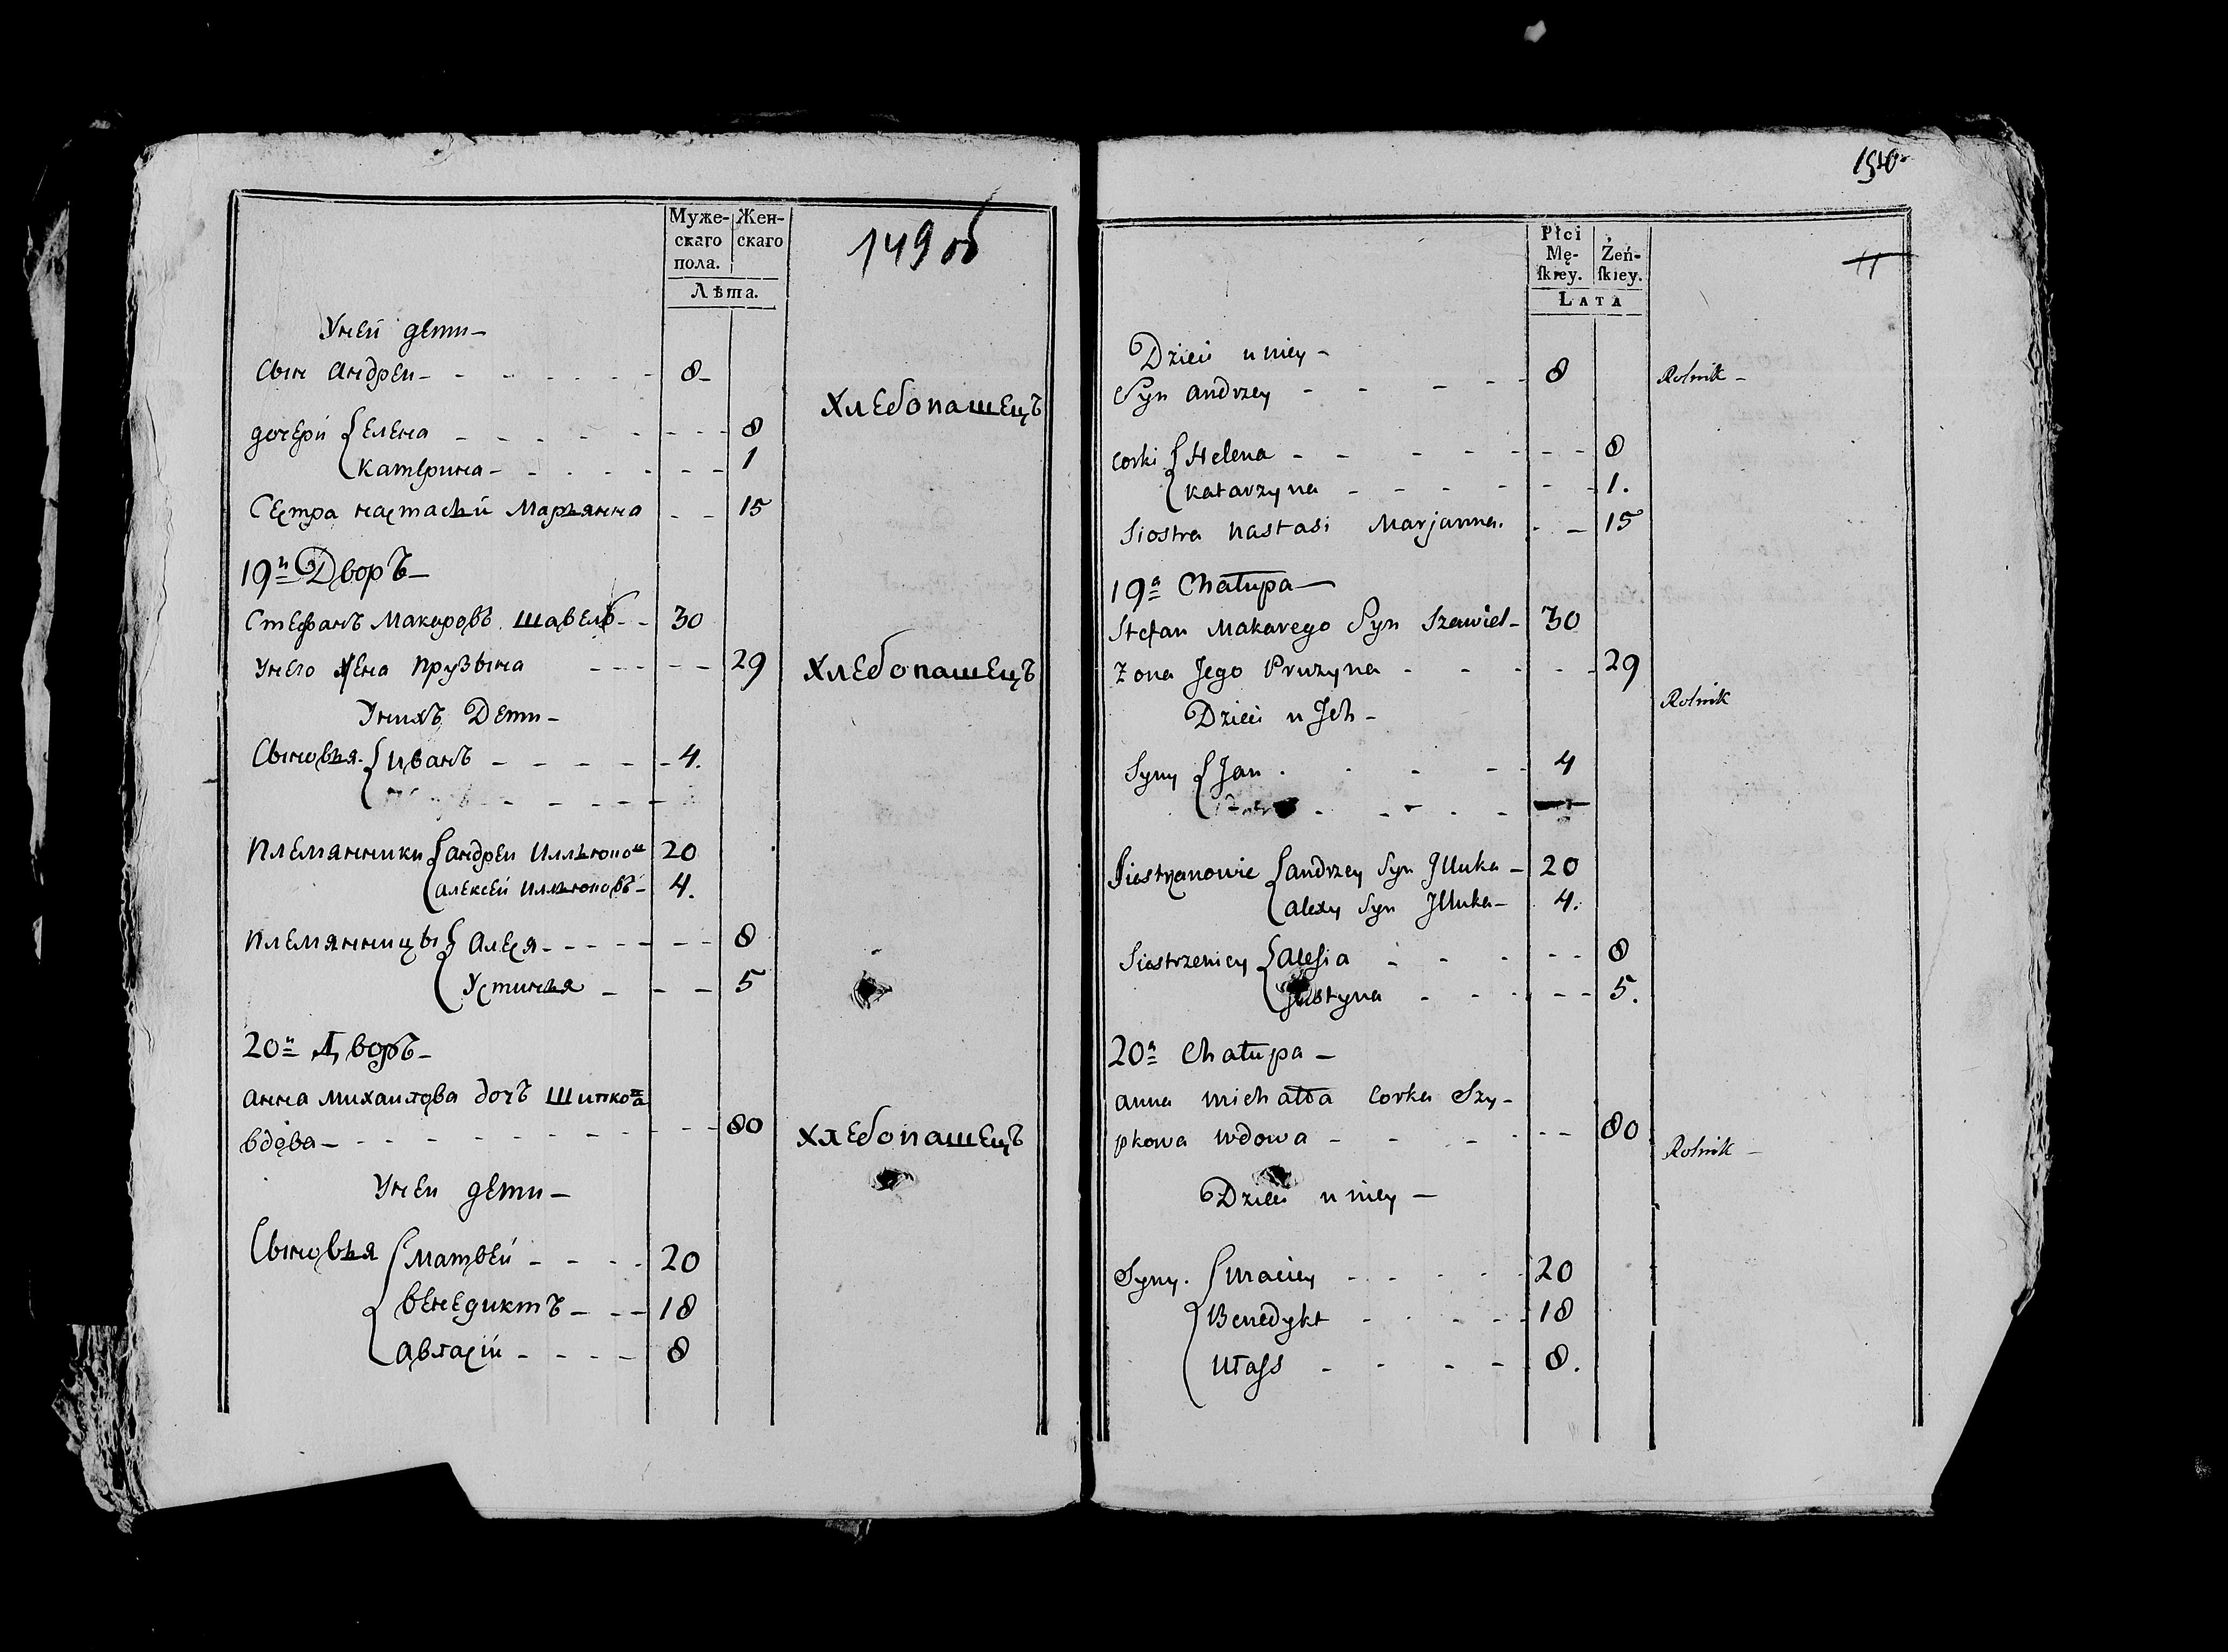 Муже-
скаго
пола.
Жен-
скаго
Лѣта.
149 об
Унеи дети-
Сын Андреи- 8-
Хлебопашецъ
дочери { Елена 8
Катерина- 1
Сестра настасьи Марьянна 15
19й Дворъ-
Стефанъ Макаровъ Шавель 30
Унего жена Прузына 29
Хлебопашецъ
Унихъ Дети-
Сыновья { иванъ 4.
Племянники { андреи Иллюпов 20
алексеи Иллюповъ- 4.
Племянницы { Алеся 8
Устинья 5
20й Дворъ-
анна михаилова дочъ Шипкова
вдова- 80
Хлебопашецъ
Унеи дети-
Сыновья { матвей 20
венедиктъ 18
авласій 8
150
11
Płci
Mę-
skiey.
Żeń-
skiey.
LATA
Dzieci u niey-
Syn andrzey 8
Rolnik-
corki { Helena 8
Katarzyna 1.
Siostra Nastasi Marjanna. 15
19a Chałupa-
Stefan Makarego Syn Szawiel- 30
Żona Jego Pruzyna 29
Rolnik
Dzieci u Jch-
Syny { Jan 4
Siestrzanowie { andrzey Syn Jlluka- 20
alexy Syn Jlluka- 4.
Siestrzenicy { Alesia 8
Justyna 5.
20a Chałupa-
anna michałda Corka Szy-
pkowa wdowa 80
Rolnik-
Dzieci u niey-
Syny. { Maciey 20
Benedykt 18
Ułass 8.